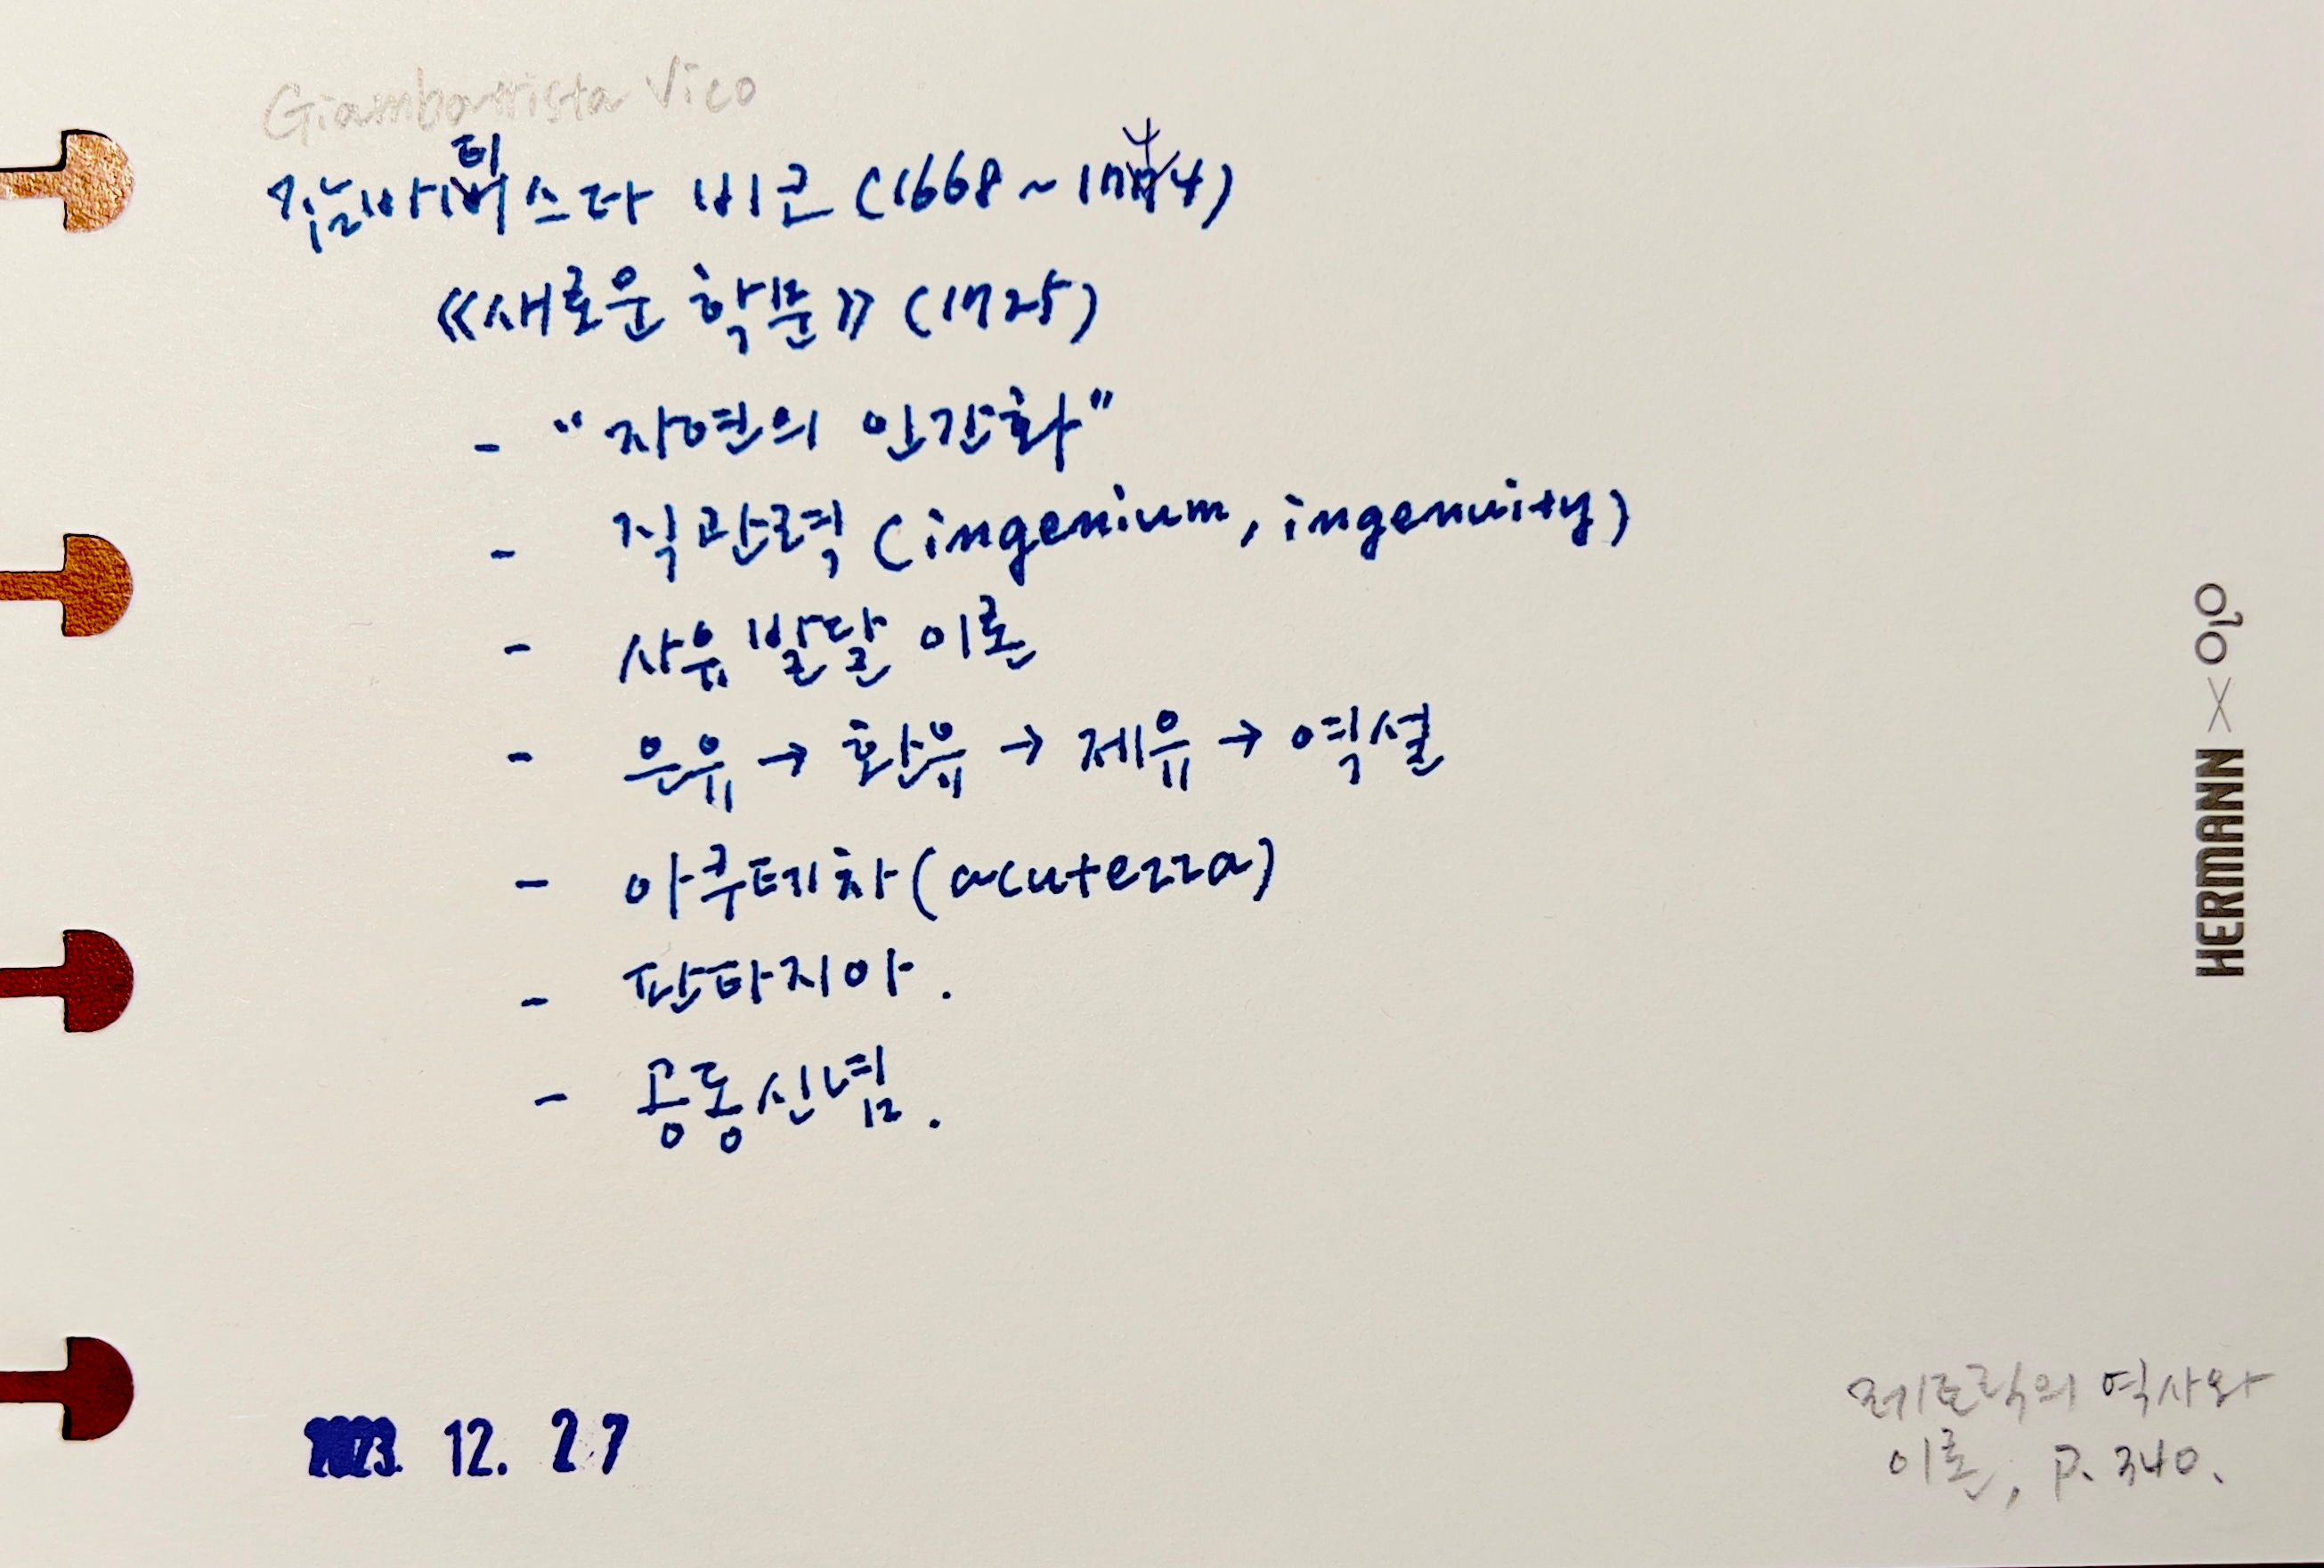 Giambattista Vico
잠바티스타 비코 (1668~1744)
《새로운 학문》 (1725)
- “자연의 인간화”
- 직관력 (ingenium, ingenuity)
- 사유 발달 이론
- 은유 → 환유 → 제유 → 역설
- 아쿠테차 (acutezza)
- 판타지아.
- 공동신념.
HERMANN X
2023. 12. 27
레토릭의 역사와
이론, p. 340.